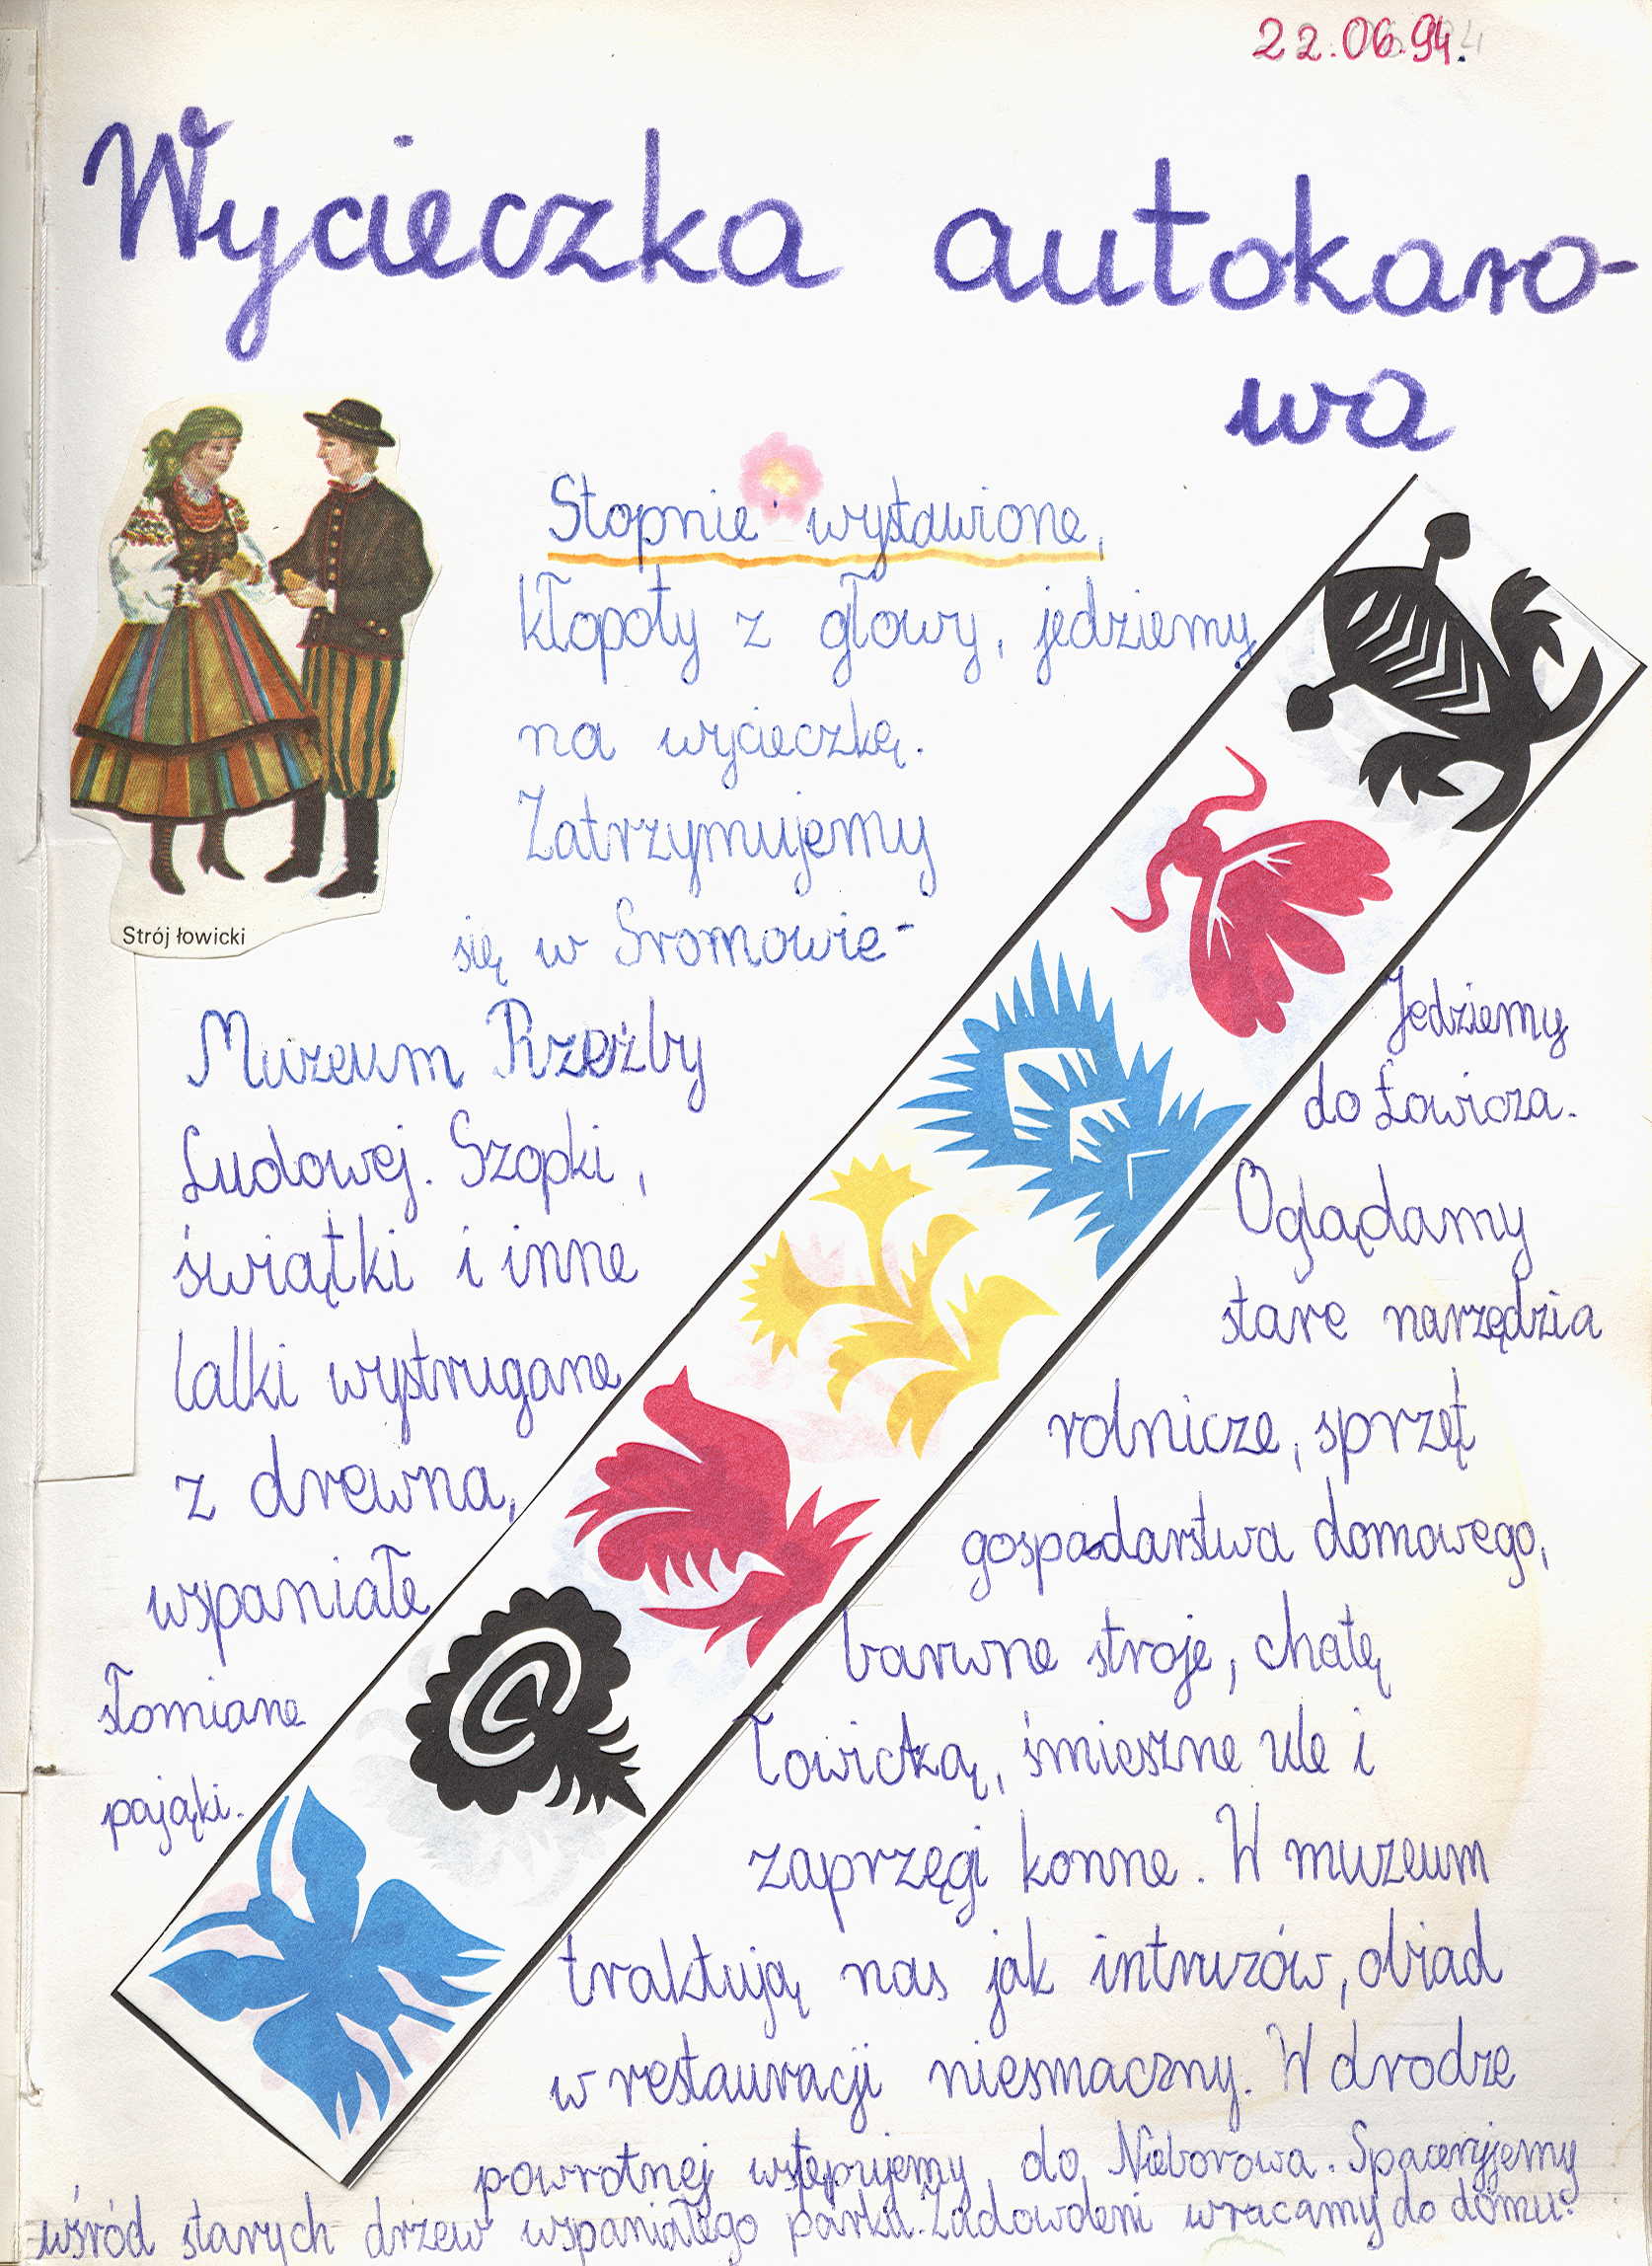 22.06.94.
Wycieczka autokaro-
wa
Stopnie wystawione,
kłopoty z głowy, jedziemy
na wycieczkę.
Zatrzymujemy
się w Sromowie-
Strój łowicki
Muzeum Rzeźby
Ludowej. Szopki,
świątki i inne
lalki wystrugane
z drewna,
wspaniałe
słomiane
pająki.
Jedziemy
do Łowicza.
Oglądamy
stare narzędzia
rolnicze, sprzęt
gospodarstwa domowego,
barwne stroje, chatę
łowicką, śmieszne ule i
zaprzęgi konne. W muzeum
traktują nas jak intruzów, obiad
w restauracji niesmaczny. W drodze
powrotnej wstępujemy do Nieborowa. Spacerujemy
wśród starych drzew wspaniałego parku. Zadowoleni wracamy do domu.